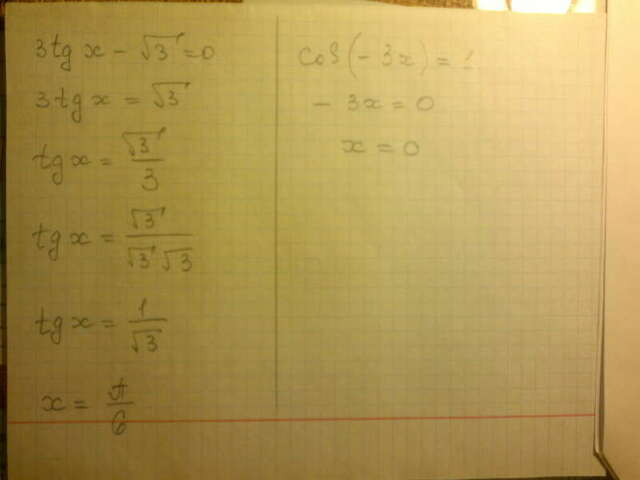 3tg x - √3 = 0
3tg x = √3
tg x = √3/3
tg x = √3/(√3 √3)
tg x = 1/√3
x = π/6
cos(-3x) =
-3x = 0
x = 0